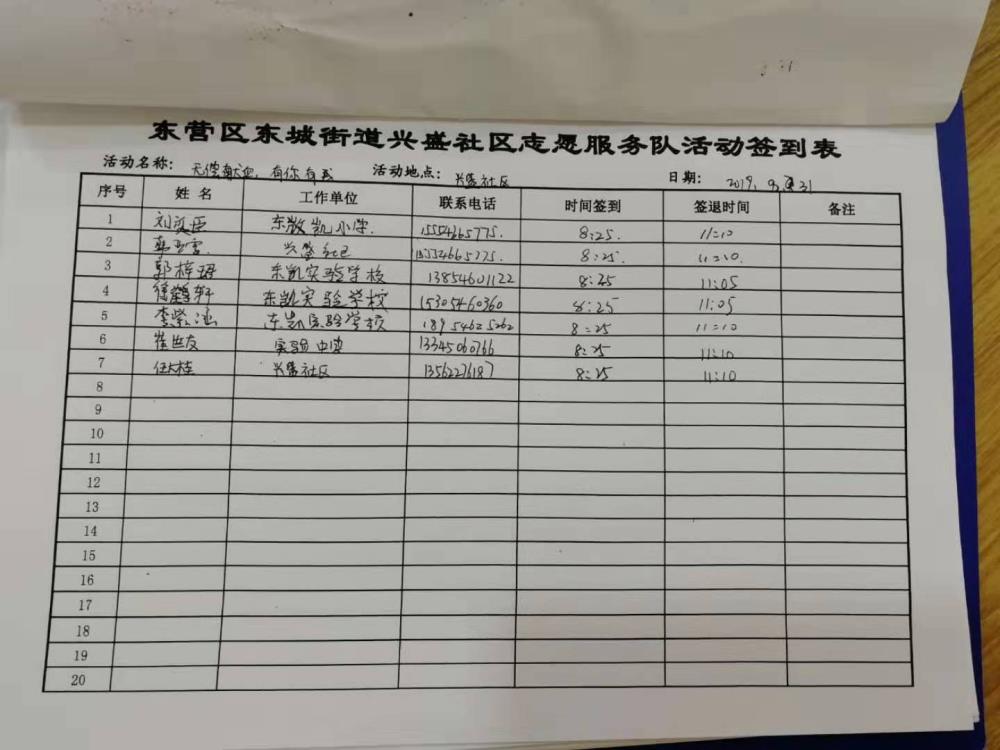 东营区东城街道兴盛社区志愿服务队活动签到表
活动名称： 无偿献血，有你有我 活动地点： 兴盛社区 日期： 2019.
序号 姓名 工作单位 联系电话 时间签到 签退时间 备注
1 东 凯小学. 8:25. 11:10
2 兴盛 8:25. 11:10.
3 郭梓珺 东凯实验学校 13854601122 8:25 11:05
4 鹤轩 东凯实验学校 15305460360 8:25 11:05
5 李紫涵 东凯实验学校 18954625262 8:25 11:10
6 崔世友 实验中学 13345060766 8:25 11:10
7 任大桂 兴盛社区 13562276187 8:25 11:10
8
9
10
11
12
13
14
15
16
17
18
19
20